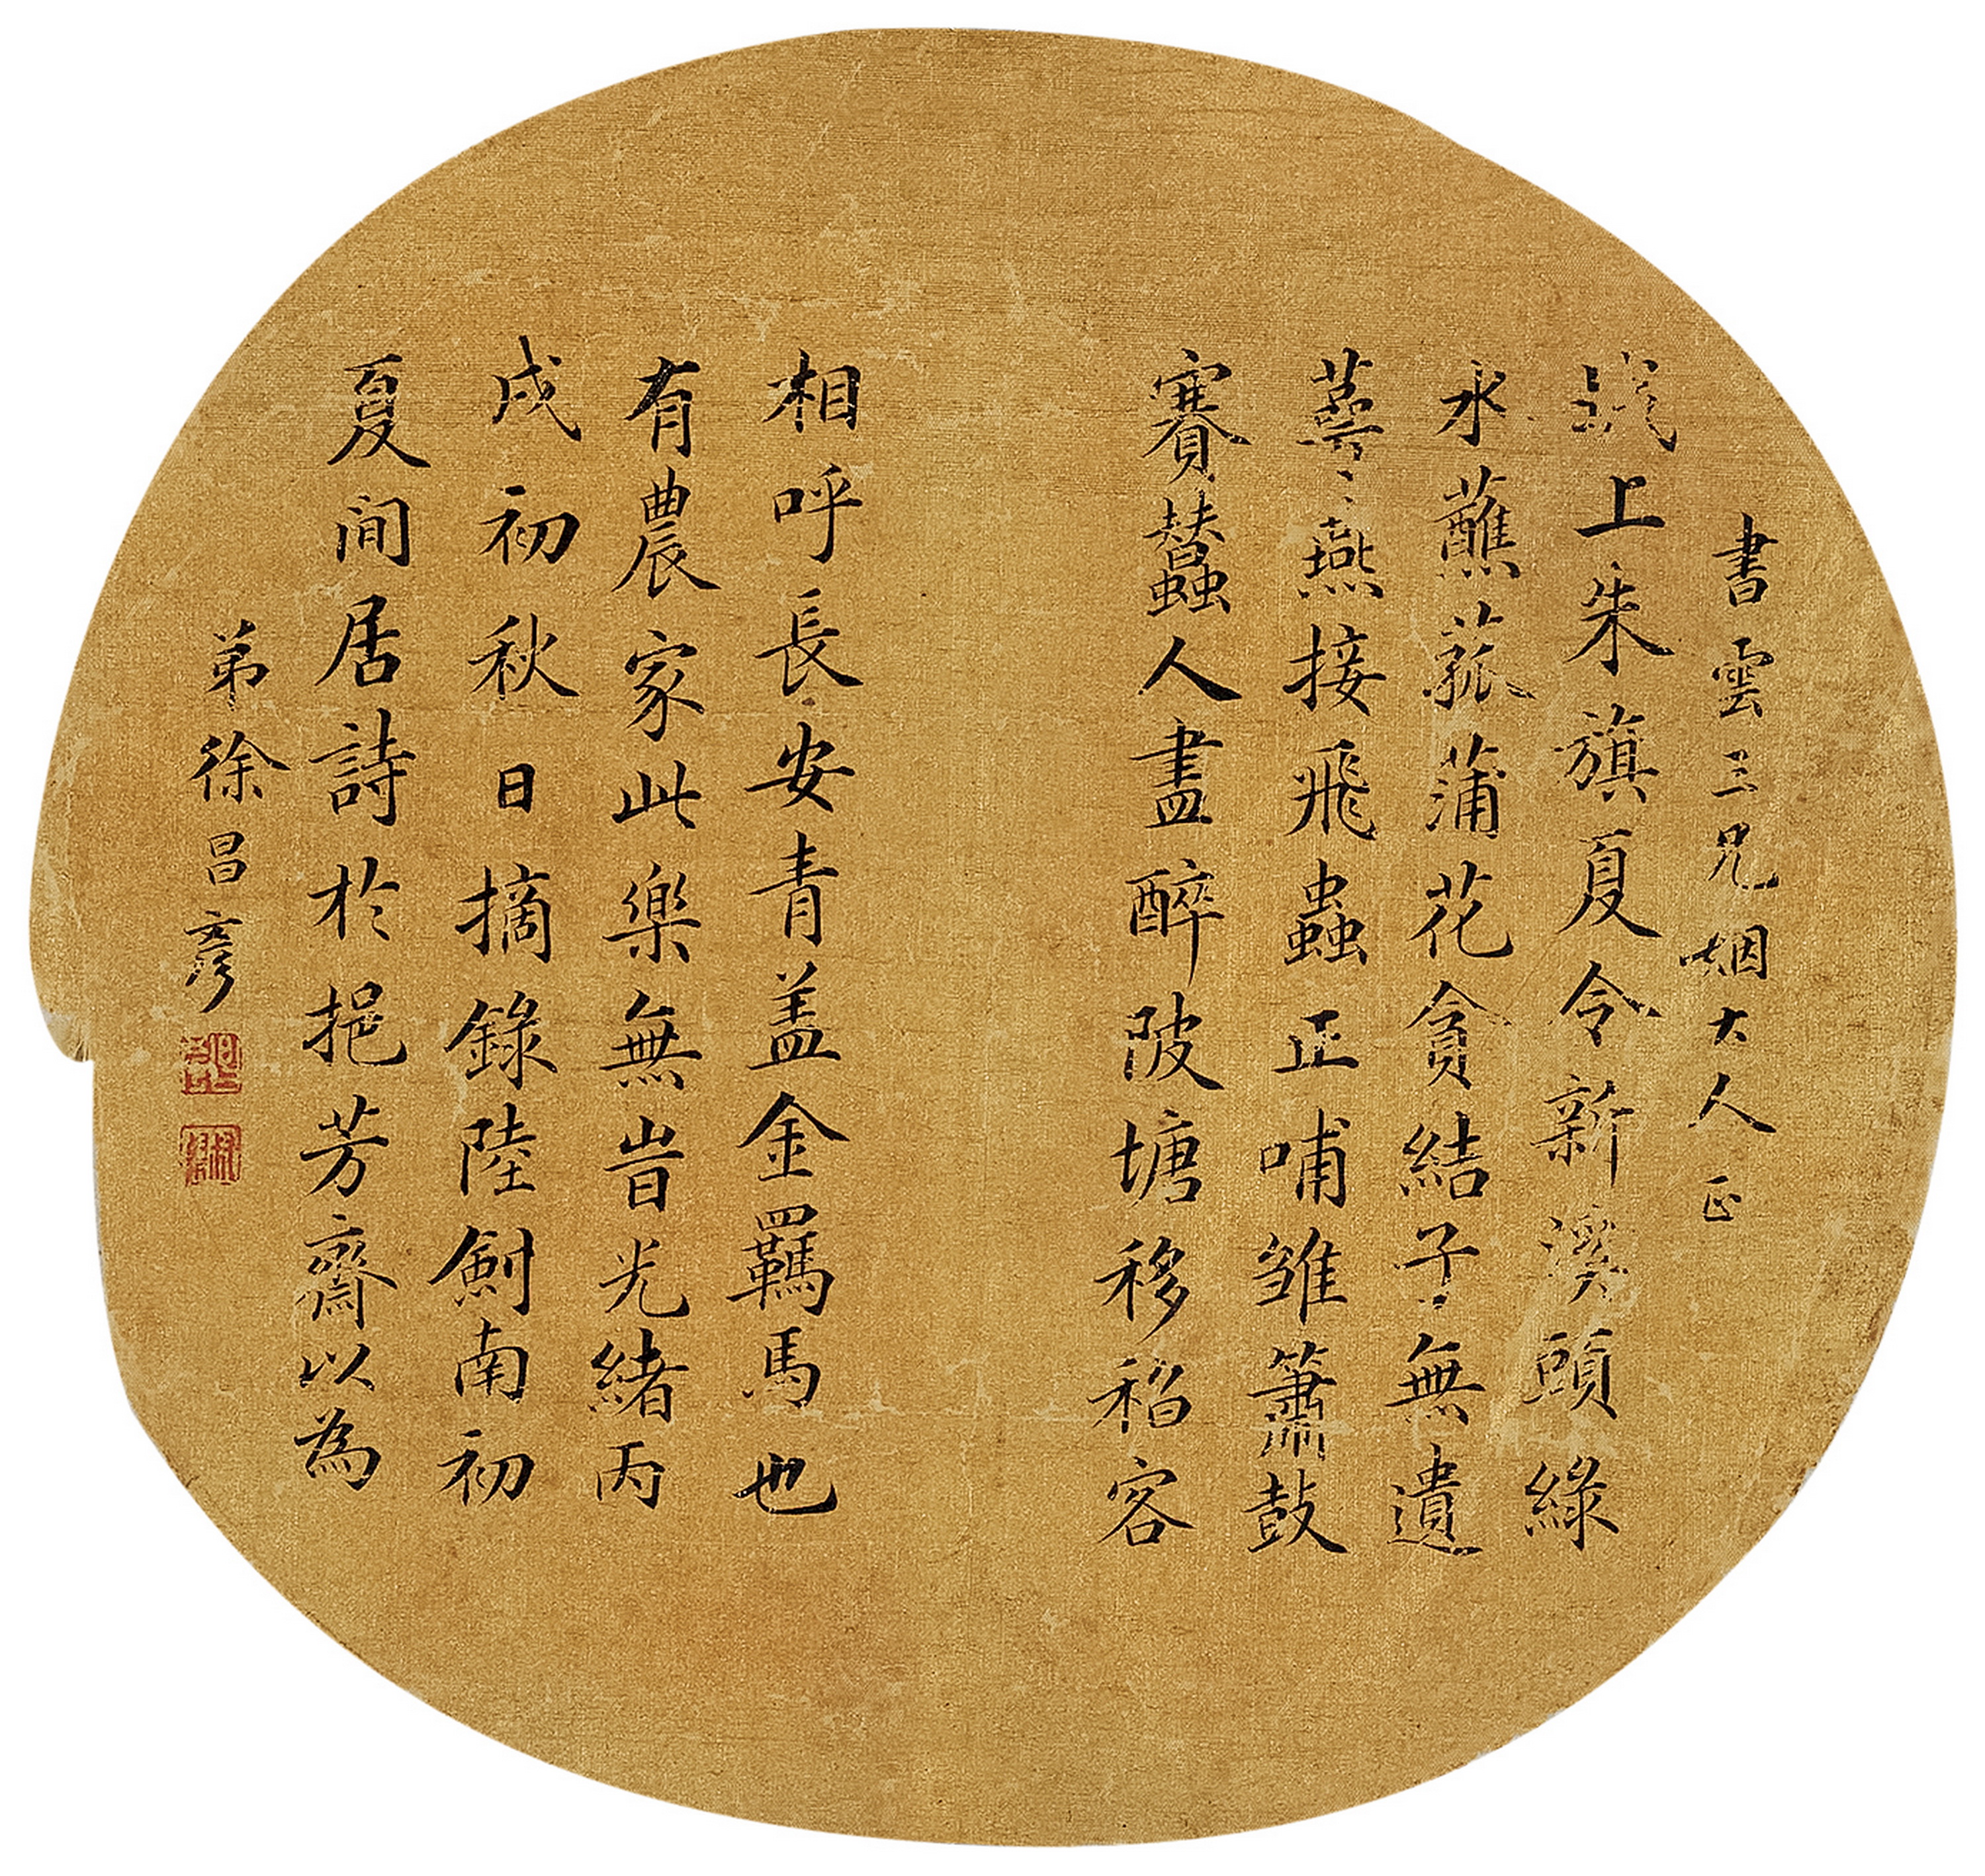 書雲三兄姻大人正
上朱旗夏令新溪頭綠
水蘸菰蒲花貪結子無遺
萼燕接飛蟲正哺雛簫鼓
賽蠶人盡醉陂塘移稻客
相呼長安青盖金羈馬也
有農家此樂無旹光緒丙
戌初秋日摘錄陸劍南初
夏間居詩於挹芳齋以為
弟徐昌彥